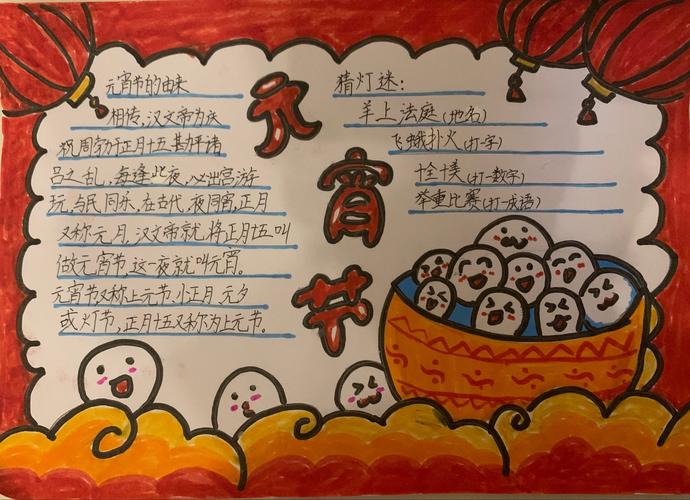 元宵节
元宵节的由来
相传,汉文帝为庆
祝周勃于正月十五勘平诸
吕之乱,每逢此夜,必出宫游
玩,与民同乐,在古代,夜同宵,正月
又称元月,汉文帝就将正月十五叫
做元宵节,这一夜就叫元宵。
元宵节又称上元节,小正月,元夕
或灯节,正月十五又称为上元节。
猜灯迷:
羊上法庭(地名)
飞蛾扑火(打一字)
十全十美(打一数字)
举重比赛(打一成语)